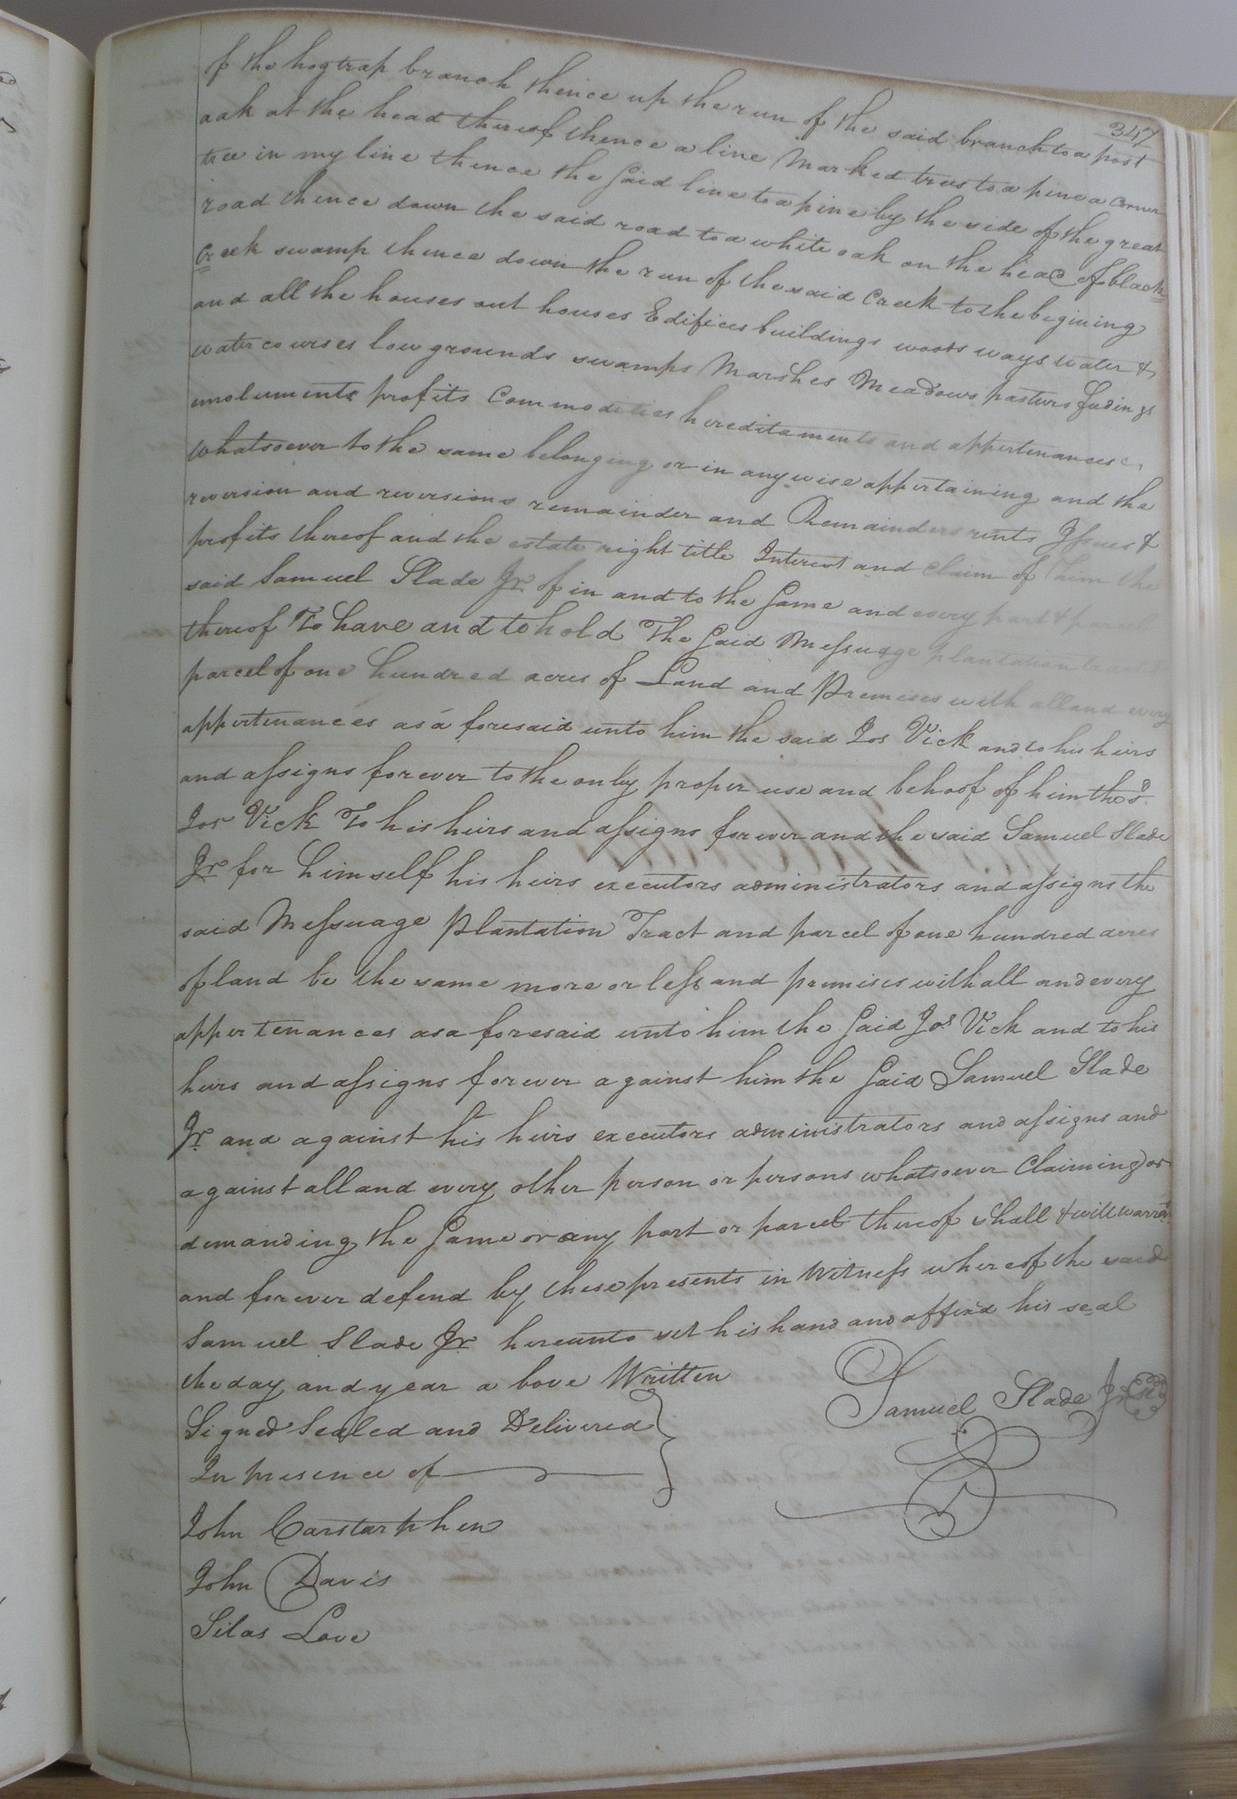 347
of the hogtrap branch thence up the run of the said branch to a post
oak at the head thereof thence a line Marked trees to a pine a Corner
tree in my line thence the said line to a pine by the side of the great
road thence down the said road to a white oak on the head of black
Creek swamp thence down the run of the said Creek to the begining
and all the houses out houses Edifices buildings woods ways water &
water courses low grounds swamps Marshes Meadows pasturs fudings
emoluments profits Commodeties hereditaments and appertenances
whatsoever to the same belonging or in any wise appertaining and the
reversion and reversions remainder and Remainders rents Issues &
profits thereof and the estate right title Interest and Claim of him the
said Samuel Slade Jr. of in and to the Same and every part & parcel
thereof To have and to hold The Said Messuage plantation
parcel of one hundred acres of Land and Premises with all and every
appertenances as aforesaid unto him the said Jos Vick and to his heirs
and assigns forever to the only proper use and behoof of him the sd.
Jos Vick To his heirs and assigns forever and the said Samuel Slade
Jr for himself his heirs executors administrators and assigns the
said Messuage Plantation Tract and parcel of one hundred acres
of land be the same more or less and premises with all and every
appertenances as aforesaid unto him the Said Jos Vick and to his
heirs and assigns forever against him the Said Samuel Slade
Jr. and against his heirs executors administrators and assigns and
against all and every other person or persons whatsoever Claiming or
demanding the Same or any part or parcel thereof shall & will warrt
and forever defend by these presents in Witness whereof the said
Samuel Slade Jr. hereunto set his hand and affixd his seal
the day and year above Written
Samuel Slade Jr
Signed Sealed and Delivered
In presence of
John Carstarphen
John Davis
Silas Love